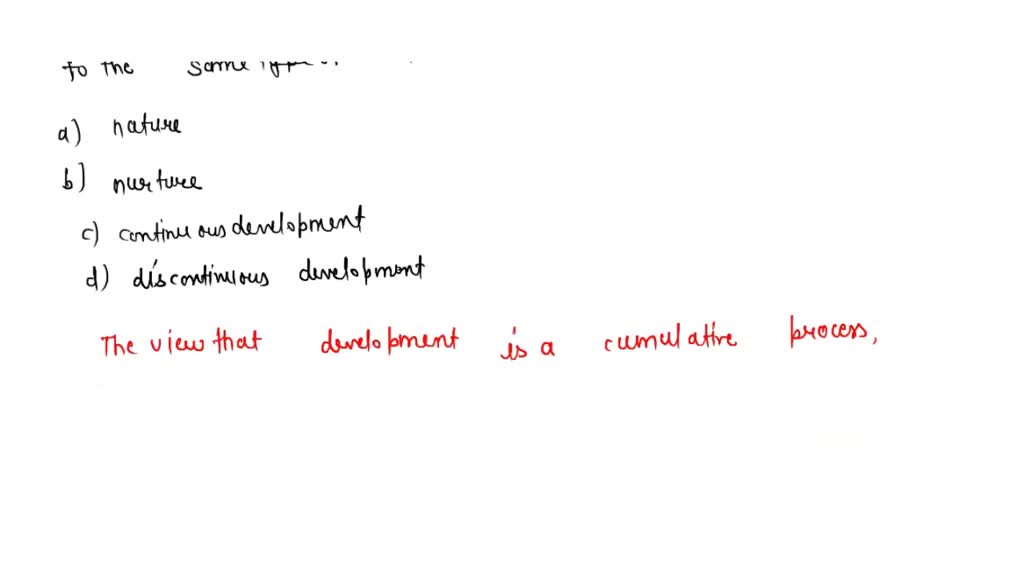 to the same
a) nature
b) nurture
c) continuous development
d) discontinuous development
The view that development is a cumulative process,